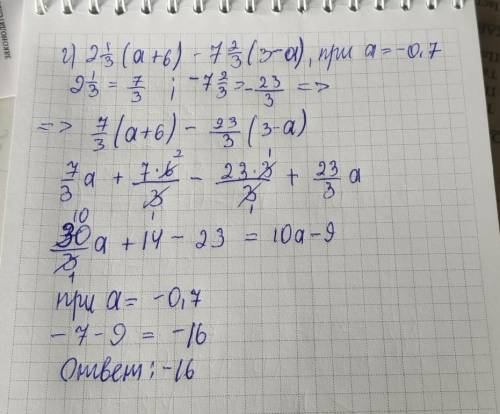 г) 2 1/3 (a+6) - 7 2/3 (3-a), при a=-0,7
2 1/3 = 7/3 ; -7 2/3 = -23/3 =>
=> 7/3 (a+6) - 23/3 (3-a)
7/3 a + 7·6/3 - 23·3/3 + 23/3 a
30/3 a + 14 - 23 = 10a-9
при a= -0,7
-7-9 = -16
Ответ: -16